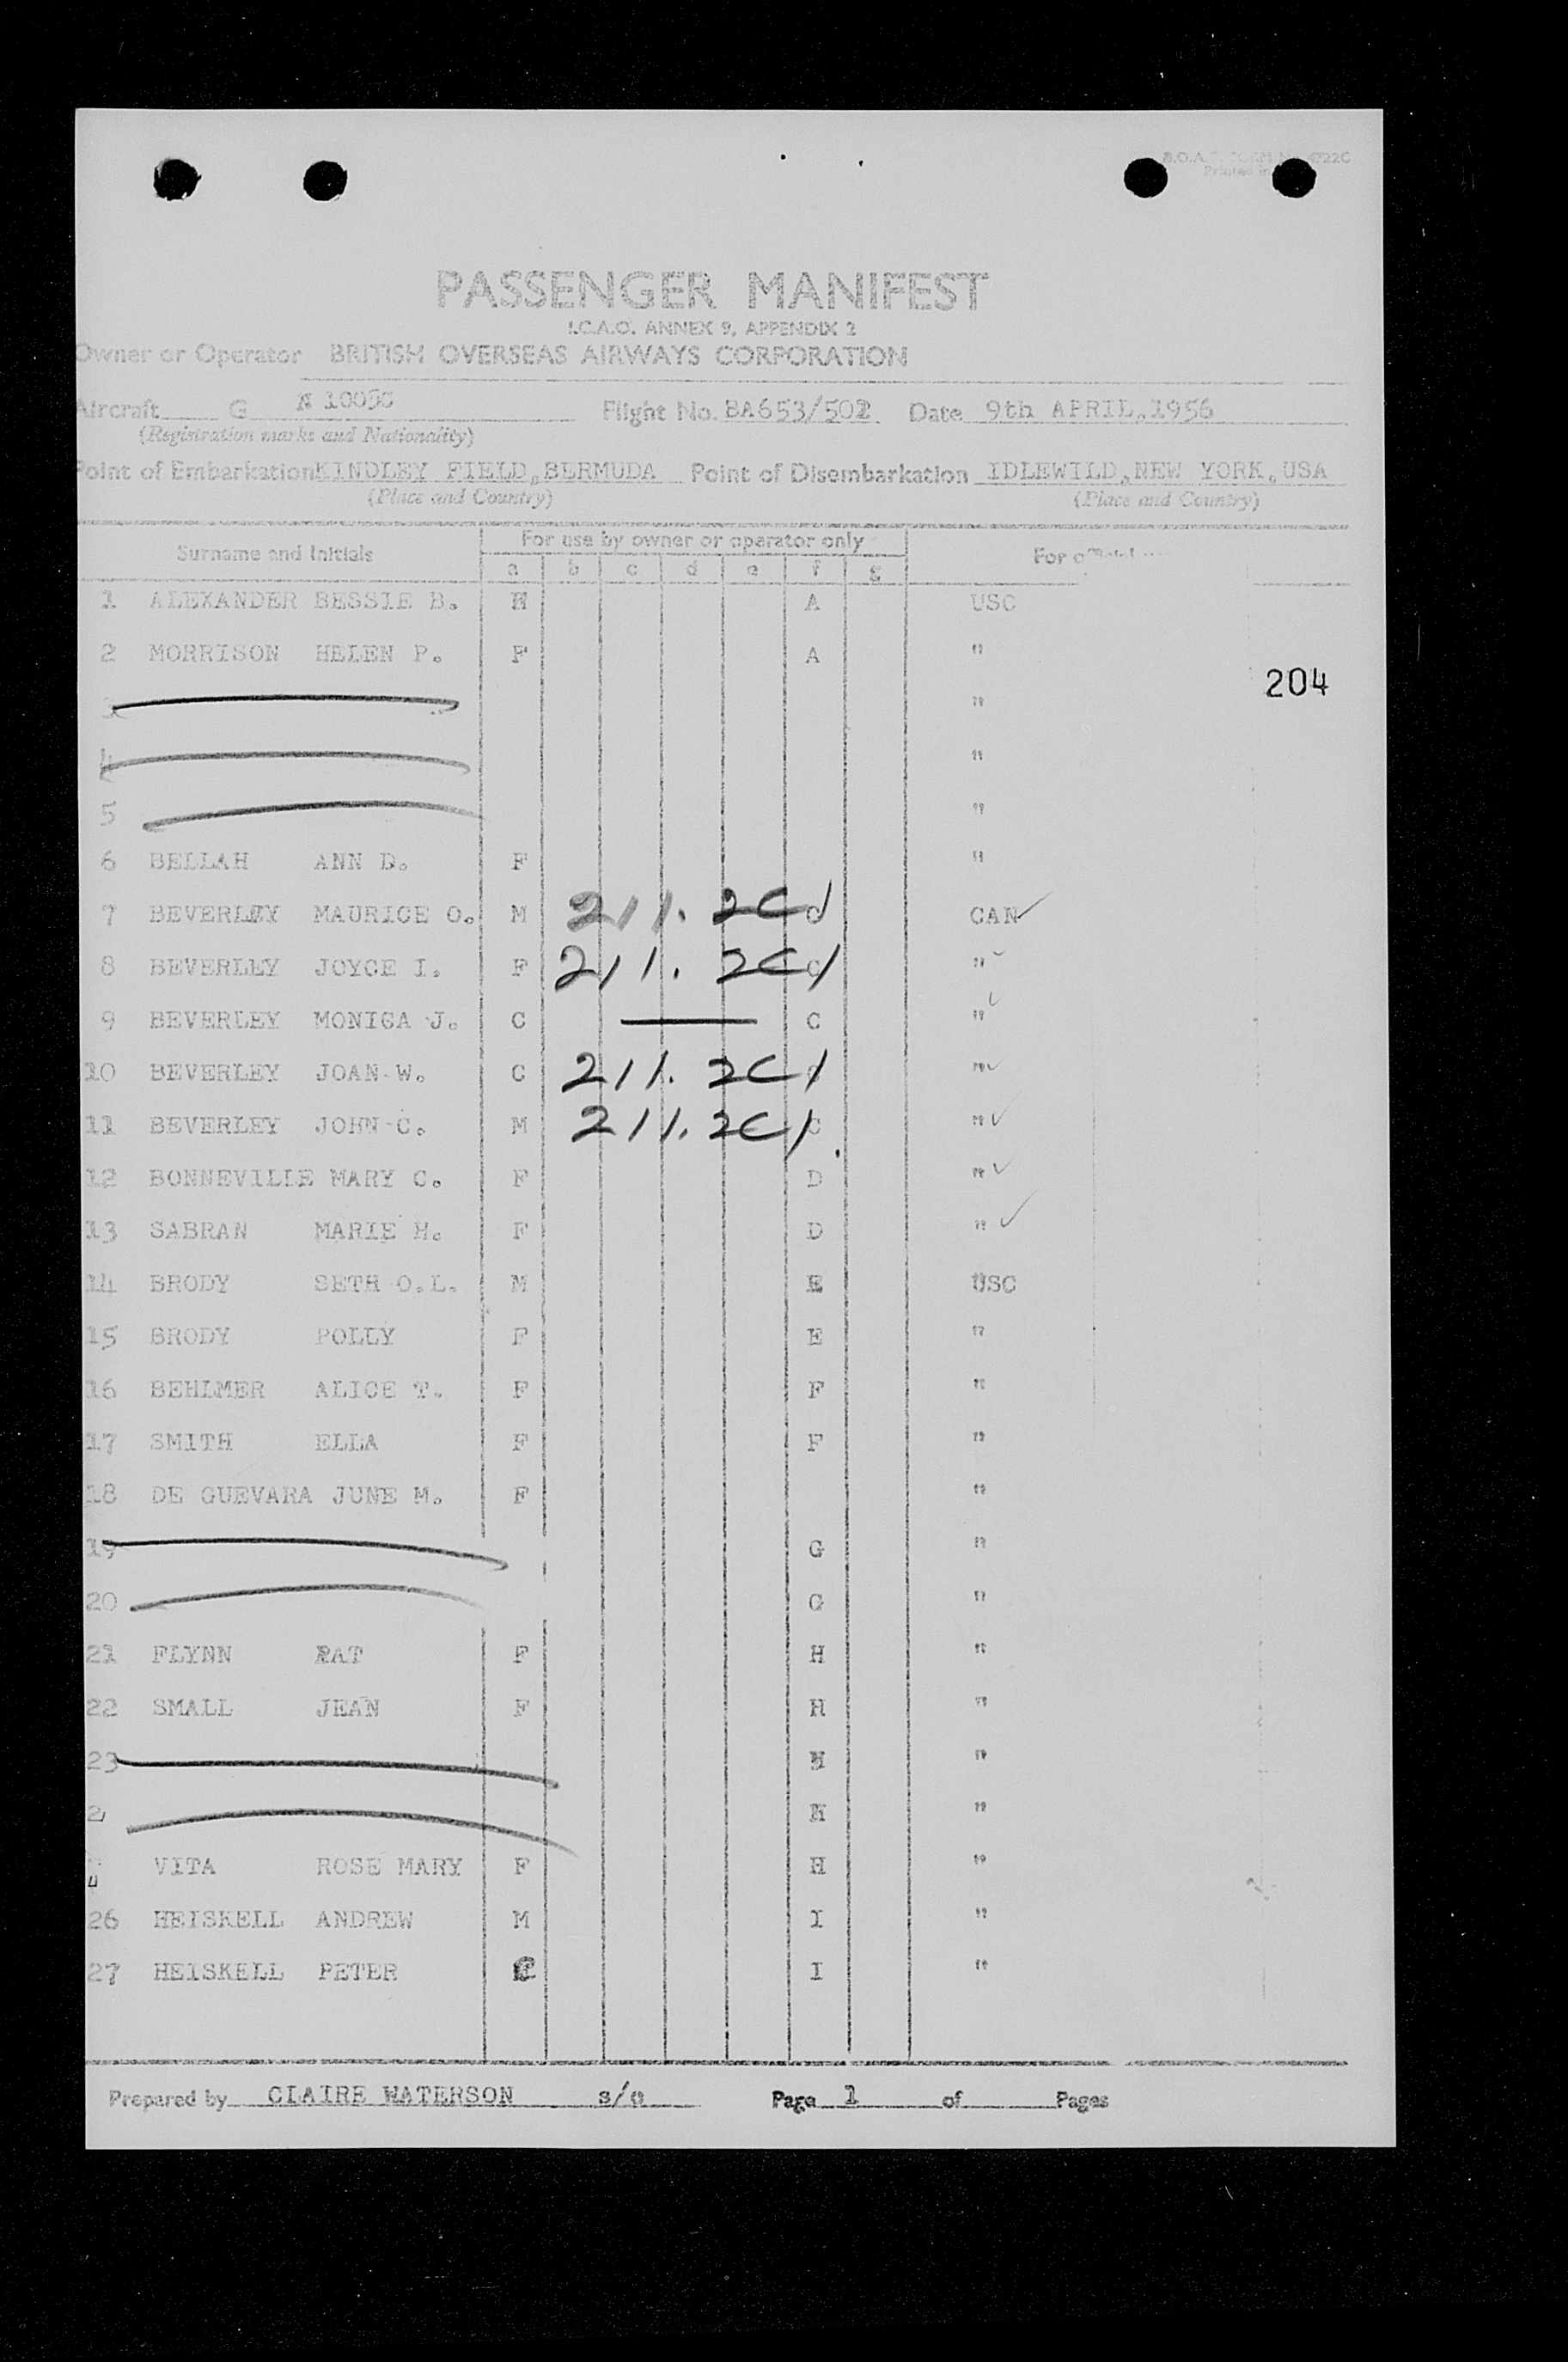 B.O.A.
Printed in
PASSENGER MANIFEST
I.C.A.O. ANNEX 9, APPENDIX 2
Owner or Operator BRITISH OVERSEAS AIRWAYS CORPORATION
Aircraft G Flight No. BA653/502 Date 9th APRIL,1956
(Registration marks and Nationality)
Point of Embarkation KINDLEY FIELD,BERMUDA Point of Disembarkation IDLEWILD,NEW YORK,USA
(Place and Country) (Place and Country)
Surname and Initials For use by owner or operator only For
a b c d e f g
1 ALEXANDER BESSIE B. A USC
2 MORRISON HELEN P. F A "
204
3 "
4 "
5 "
6 BELLAH ANN D. F "
7 BEVERLEY MAURICE O. M 211. CAN
8 BEVERLEY JOYCE I. F 211. "
9 BEVERLEY MONICA J. C C "
10 BEVERLEY JOAN W. C 211. "
11 BEVERLEY JOHN C. M 211. C "
12 BONNEVILLE MARY C. F D "
13 SABRAN MARIE H. F D "
14 BRODY SETH O.L. M E USC
15 BRODY POLLY F E "
16 BEHLMER ALICE T. F F "
17 SMITH ELLA F F "
18 DE GUEVARA JUNE M. F "
19 G "
20 G "
21 FLYNN PAT F H "
22 SMALL JEAN F H "
23 "
"
VITA ROSE MARY F H "
26 HEISKELL ANDREW M I "
27 HEISKELL PETER C I "
Prepared by CLAIRE WATERSON Page 1 of Pages